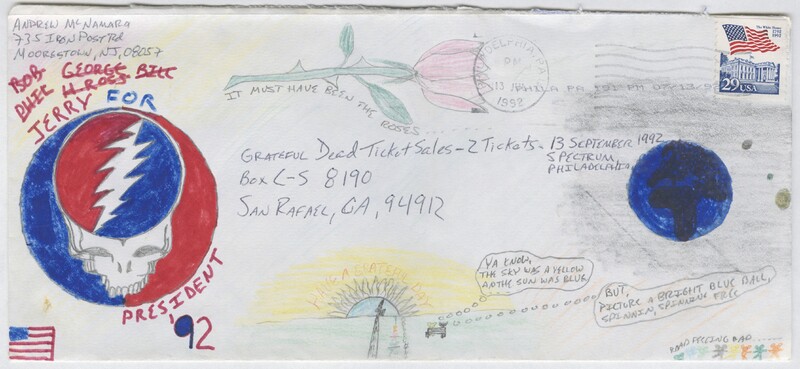 ANDREW MCNAMARA
735 IRON POST RD
MOORESTOWN, NJ, 08057
BOB GEORGE BILL
PHIL H. ROSS
JERRY FOR
PRESIDENT
'92
IT MUST HAVE BEEN THE ROSES.......
DELPHIA, PA
PM
13
1992
PHILA PA
The White House
29 USA
GRATEFUL Dead Ticket Sales - 2 Tickets - 13 SEPTEMBER 1992
SPECTRUM
PHILADELPHIA
BOX C-S 8190
SAN RAFAEL, CA, 94912
HAVE A GRATEFUL DAY
YA KNOW,
THE SKY WAS A YELLOW
AND THE SUN WAS BLUE
BUT,
PICTURE A BRIGHT BLUE BALL,
SPINNIN, SPINNING FREE
ROAD FEELING BAD......